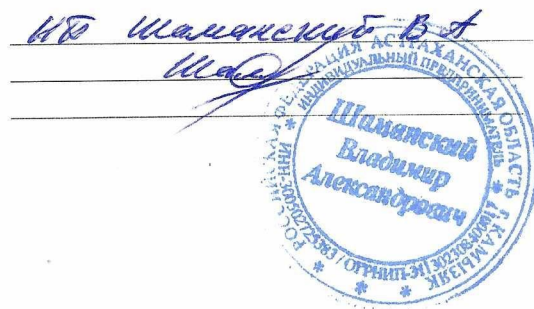 ИП Шаманский В А
РОССИЙСКАЯ ФЕДЕРАЦИЯ АСТРАХАНСКАЯ ОБЛАСТЬ Г.КАМЫЗЯК
ИНДИВИДУАЛЬНЫЙ ПРЕДПРИНИМАТЕЛЬ
Шаманский
Владимир
Александрович